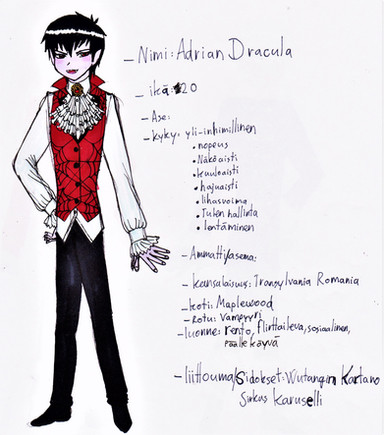 - Nimi: Adrian Dracula
- ikä: 20
- Ase:
- kyky: yli-inhimillinen
• nopeus
• Näköaisti
• kuuloaisti
• hajuaisti
• lihasvoima
• Tulen hallinta
• lentäminen
- Ammatti/asema:
- kansalaisuus: Transylvania Romania
- koti: Maplewood
- Rotu: Vampyyri
- luonne: rento, flirttaileva, sosiaalinen,
päälle käyvä
- liittouma/Sidokset: Wutangin Kartano
Sirkus Karuselli